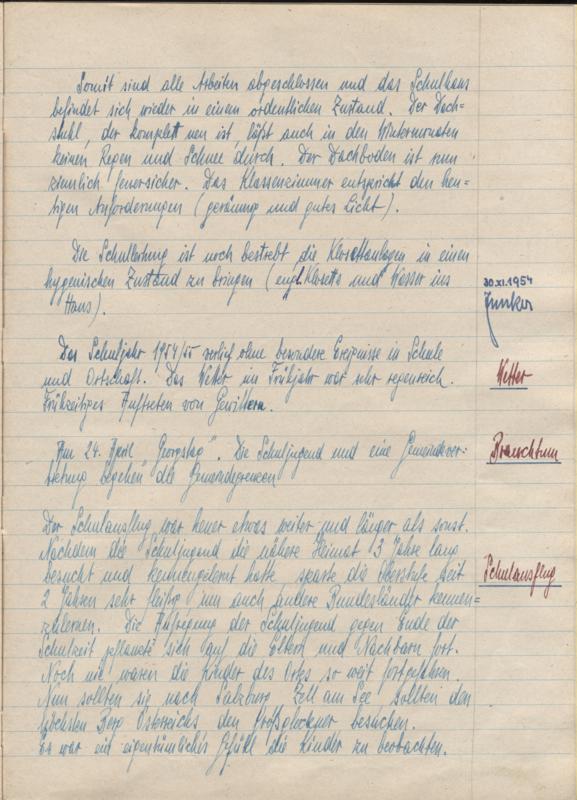 Somit sind alle Arbeiten abgeschlossen und das Schulhaus
befindet sich wieder in einem ordentlichen Zustand. Der Dach=
stuhl, der komplett neu ist, läßt auch in den Wintermonaten
keinen Regen und Schnee durch. Der Dachboden ist nun
ziemlich feuersicher. Das Klassenzimmer entspricht den heu=
tigen Anforderungen (geräumig und gutes Licht).
Die Schulleitung ist noch bestrebt die Klosettanlagen in einen
hygenischen Zustand zu bringen (engl. Klosetts und Wasser ins
Haus).
30.XI.1954
Junker
Das Schuljahr 1954/55 verlief ohne besondere Ereignisse in Schule
und Ortschaft. Das Wetter im Frühjahr war sehr regenreich.
Frühzeitiges Auftreten von Gewittern.
Wetter
Am 24. April "Georgstag". Die Schuljugend und eine Gemeindever=
tretung begehen die Gemeindegrenzen
Brauchtum
Der Schulausflug war heuer etwas weiter und länger als sonst.
Nachdem die Schuljugend die nähere Heimat 3 Jahre lang
besucht und kennengelernt hatte, sparte die Oberstufe seit
2 Jahren sehr fleißig um auch andere Bundesländer kennen=
zulernen. Die Aufregung der Schuljugend gegen Ende der
Schulzeit pflanzte sich auf die Eltern und Nachbarn fort.
Noch nie waren die Kinder des Ortes so weit fortgefahren.
Nun sollten sie nach Salzburg, Zell am See sollten den
höchsten Berg Österreichs den Großglockner besuchen.
Es war ein eigentümliches Gefühl die Kinder zu beobachten.
Schulausflug